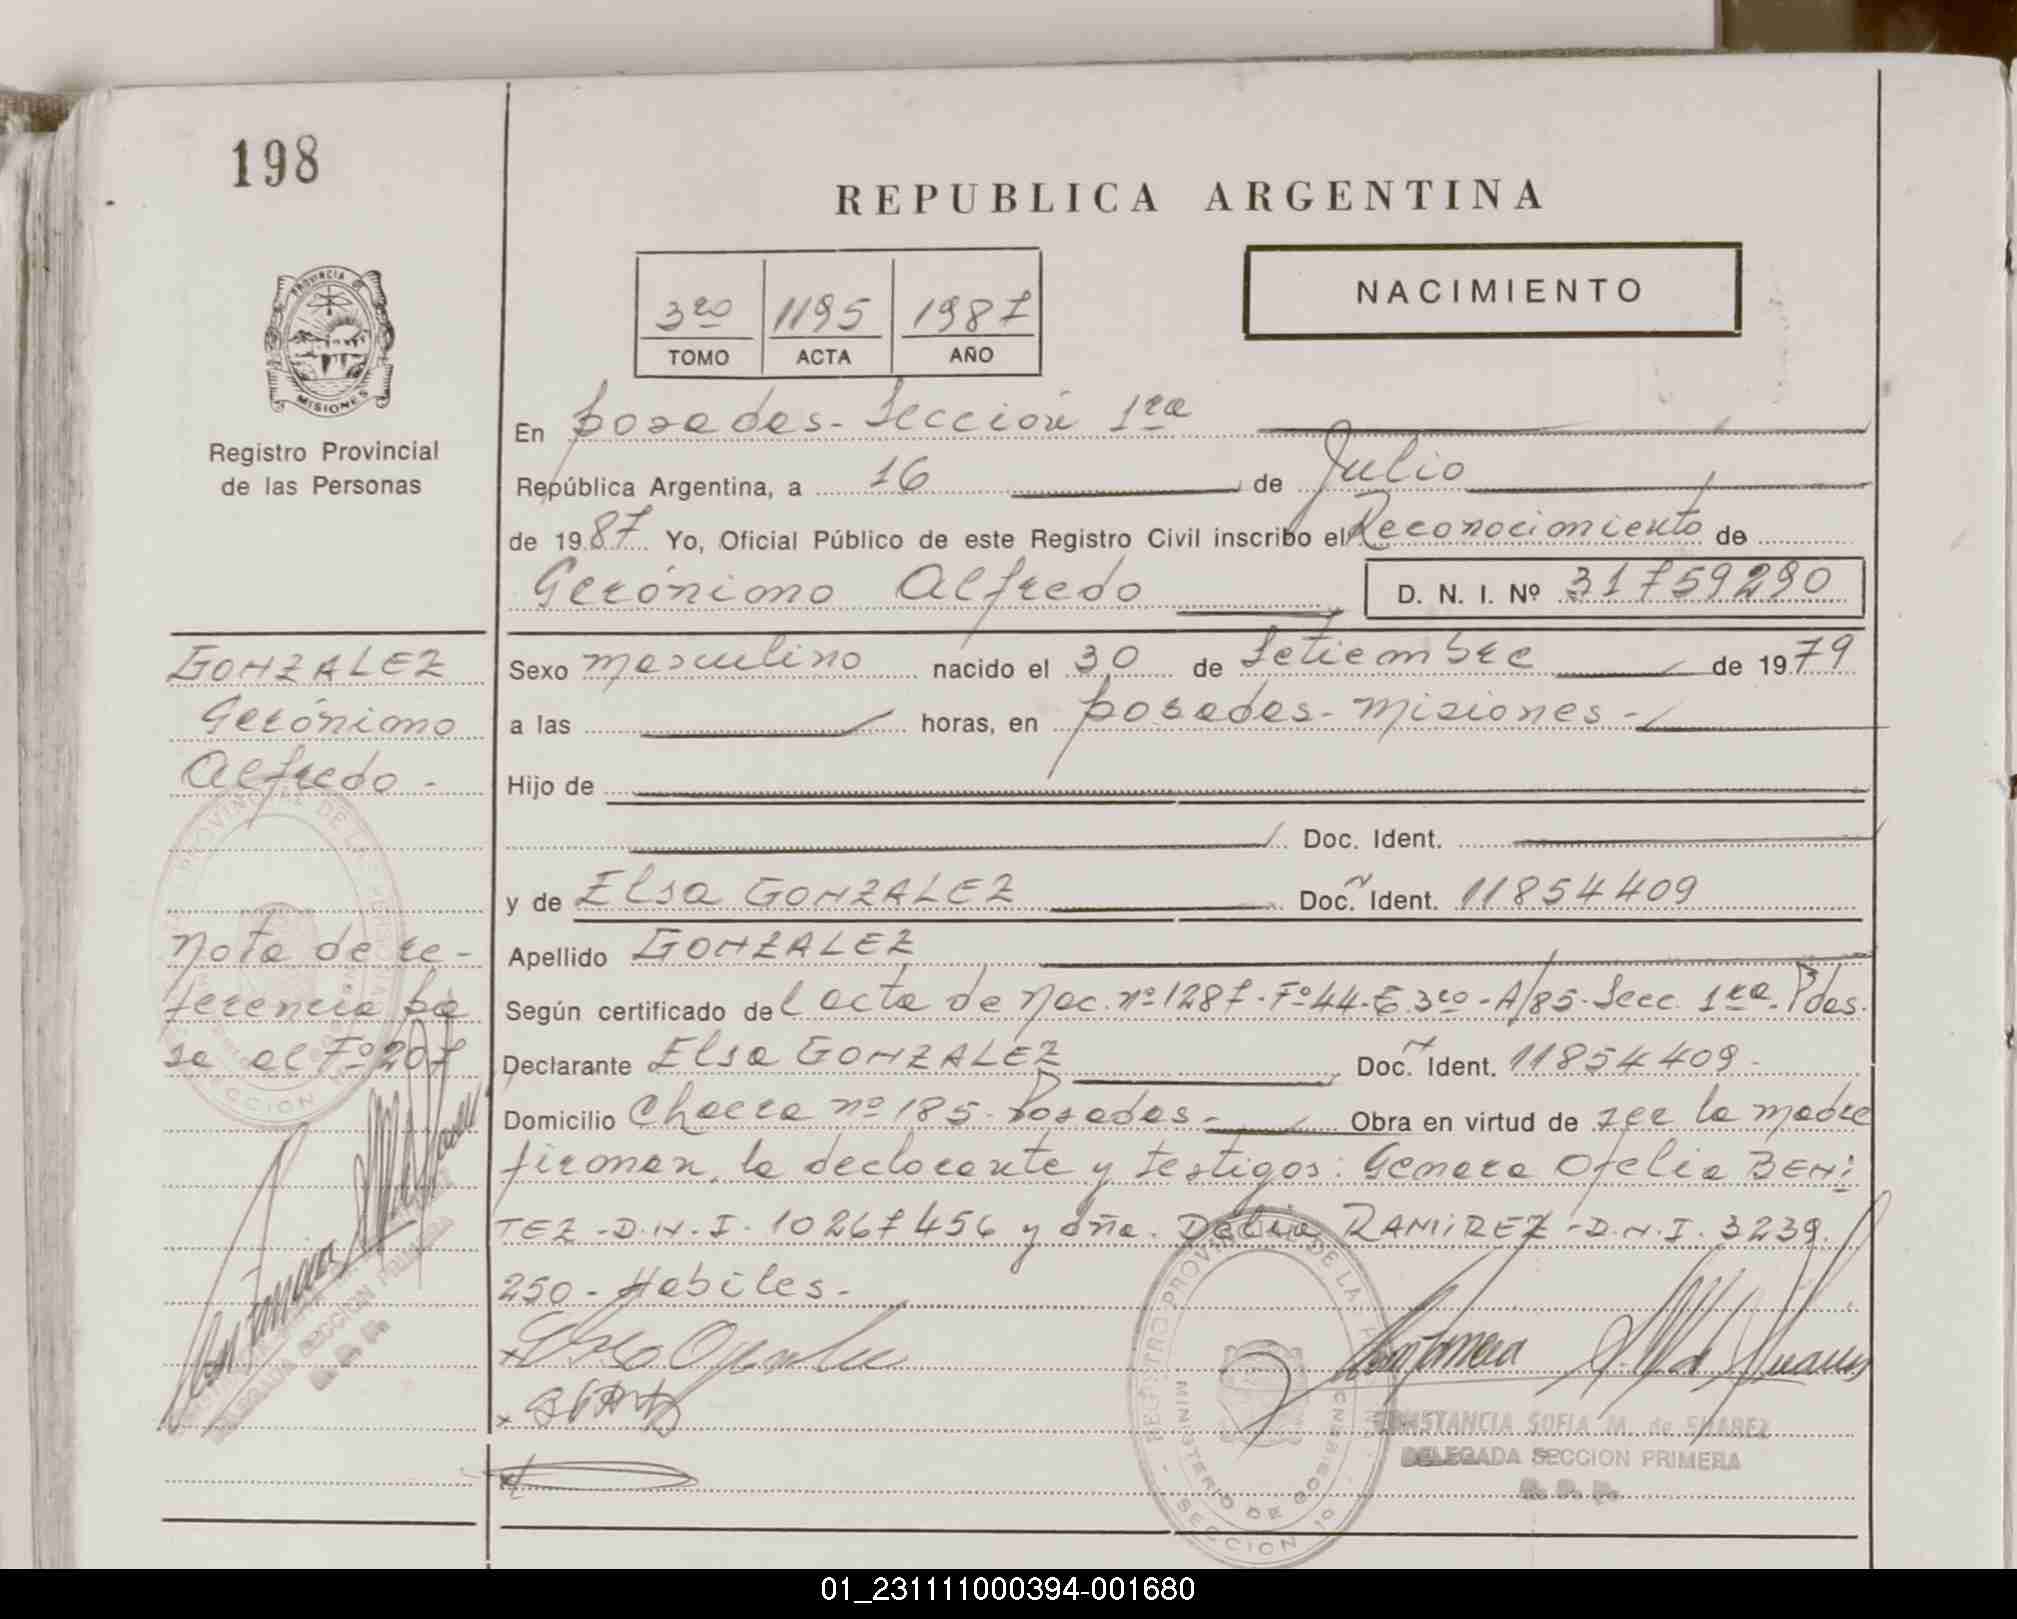 198
REPUBLICA ARGENTINA
PROVINCIA DE
MISIONES
Registro Provincial
de las Personas
3ro 1195 1987
TOMO ACTA AÑO
NACIMIENTO
En Posadas - Sección 1ra
República Argentina, a 16 de Julio
de 1987 Yo, Oficial Público de este Registro Civil inscribo el Reconocimiento de
Gerónimo Alfredo D. N. I. Nº 31759290
GONZALEZ
Gerónimo
Alfredo -
Sexo masculino nacido el 30 de Setiembre de 1979
a las horas, en posadas - misiones -
Hijo de
Doc. Ident.
y de Elsa GONZALEZ Doc. Ident. 11854409
Apellido GONZALEZ
Según certificado del acta de nac. nº 1287 - Fº 44 - T. 3ro - A/85 - Secc. 1ra - Pdas.
Declarante Elsa GONZALEZ Doc. Ident. 11854409 -
Domicilio Chacra nº 185 - Posadas - Obra en virtud de ser la madre
firman, la declarante y testigos: Genara Ofelia BENI
TEZ - D.N.I. 10267456 y dña. Delia RAMIREZ - D.N.I. 3239.
250 - Habiles -
nota de re-
ferencia pa
se al Fº 207
CONSTANCIA SOFIA M. de SUAREZ
DELEGADA SECCION PRIMERA
R. P. P.
REGISTRO PROVINCIAL DE LAS
MINISTERIO DE GOBIERNO
SECCION 1º
DELEGADA SECCION PRIMERA
R. P. P.
01_231111000394-001680